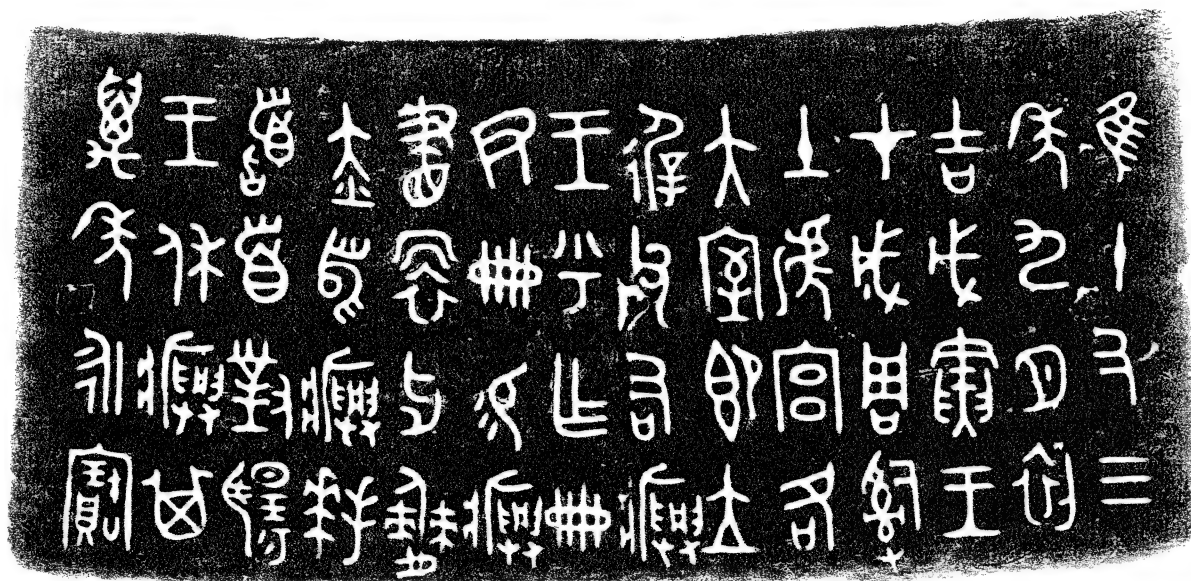 隹十又三
年九月初
吉戊寅王
才成周𤔲
土淲宮各
大室即立
𢓊父右𤼈
王乎乍冊
尹冊易𤼈
畫牙僰
赤舄𤼈拜
𩒨首對揚
王休𤼈其
萬年永寶